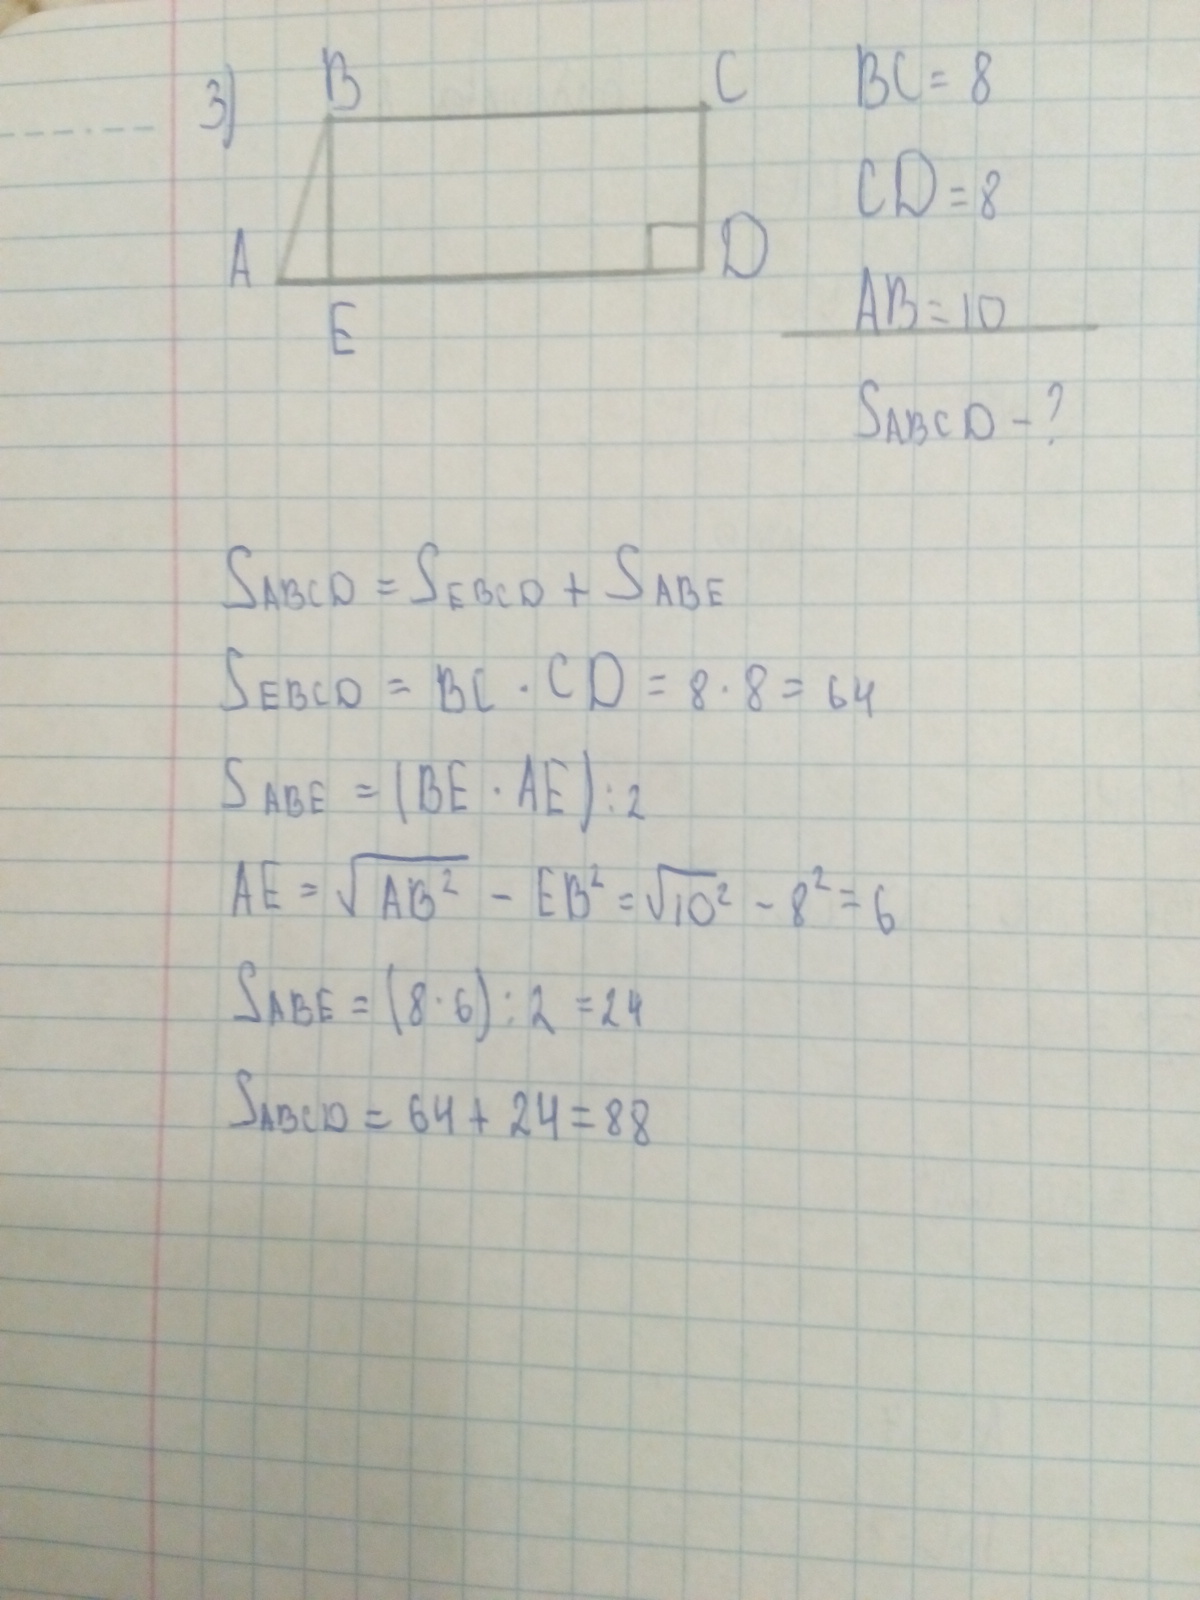 3)
B
C
A
D
E
BC = 8
CD = 8
AB = 10
SABCD - ?
SABCD = SEBCD + SABE
SEBCD = BC · CD = 8 · 8 = 64
SABE = (BE · AE) : 2
AE = √AB² - EB² = √10² - 8² = 6
SABE = (8 · 6) : 2 = 24
SABCD = 64 + 24 = 88